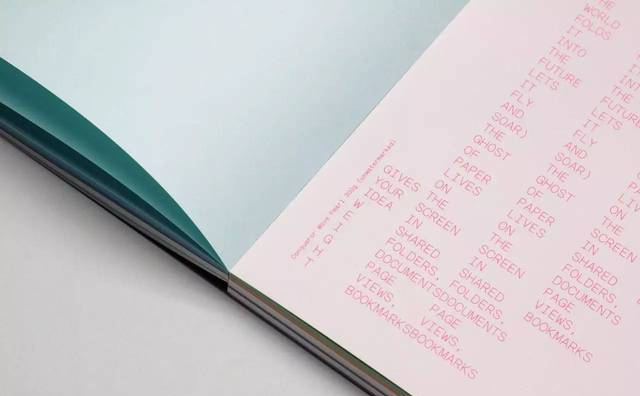 Conqueror Wove Pearl 300g (unwatermarked)
GIVES
YOUR
IDEA
WEIGHT
THE
WORLD
FOLDS
IT
INTO
THE
FUTURE
LETS
IT
FLY
AND
SOAR)
THE
GHOST
OF
PAPER
LIVES
ON
THE
SCREEN
IN
SHARED
FOLDERS,
DOCUMENTS
PAGE
VIEWS,
BOOKMARKS
THE
FUTURE
LETS
IT
FLY
AND
SOAR)
THE
GHOST
OF
PAPER
LIVES
ON
THE
SCREEN
IN
SHARED
FOLDERS,
DOCUMENTS
PAGE
VIEWS,
BOOKMARKS
THE
GHOST
OF
PAPER
LIVES
ON
THE
SCREEN
IN
SHARED
FOLDERS,
DOCUMENTS
PAGE
VIEWS,
BOOKMARKS